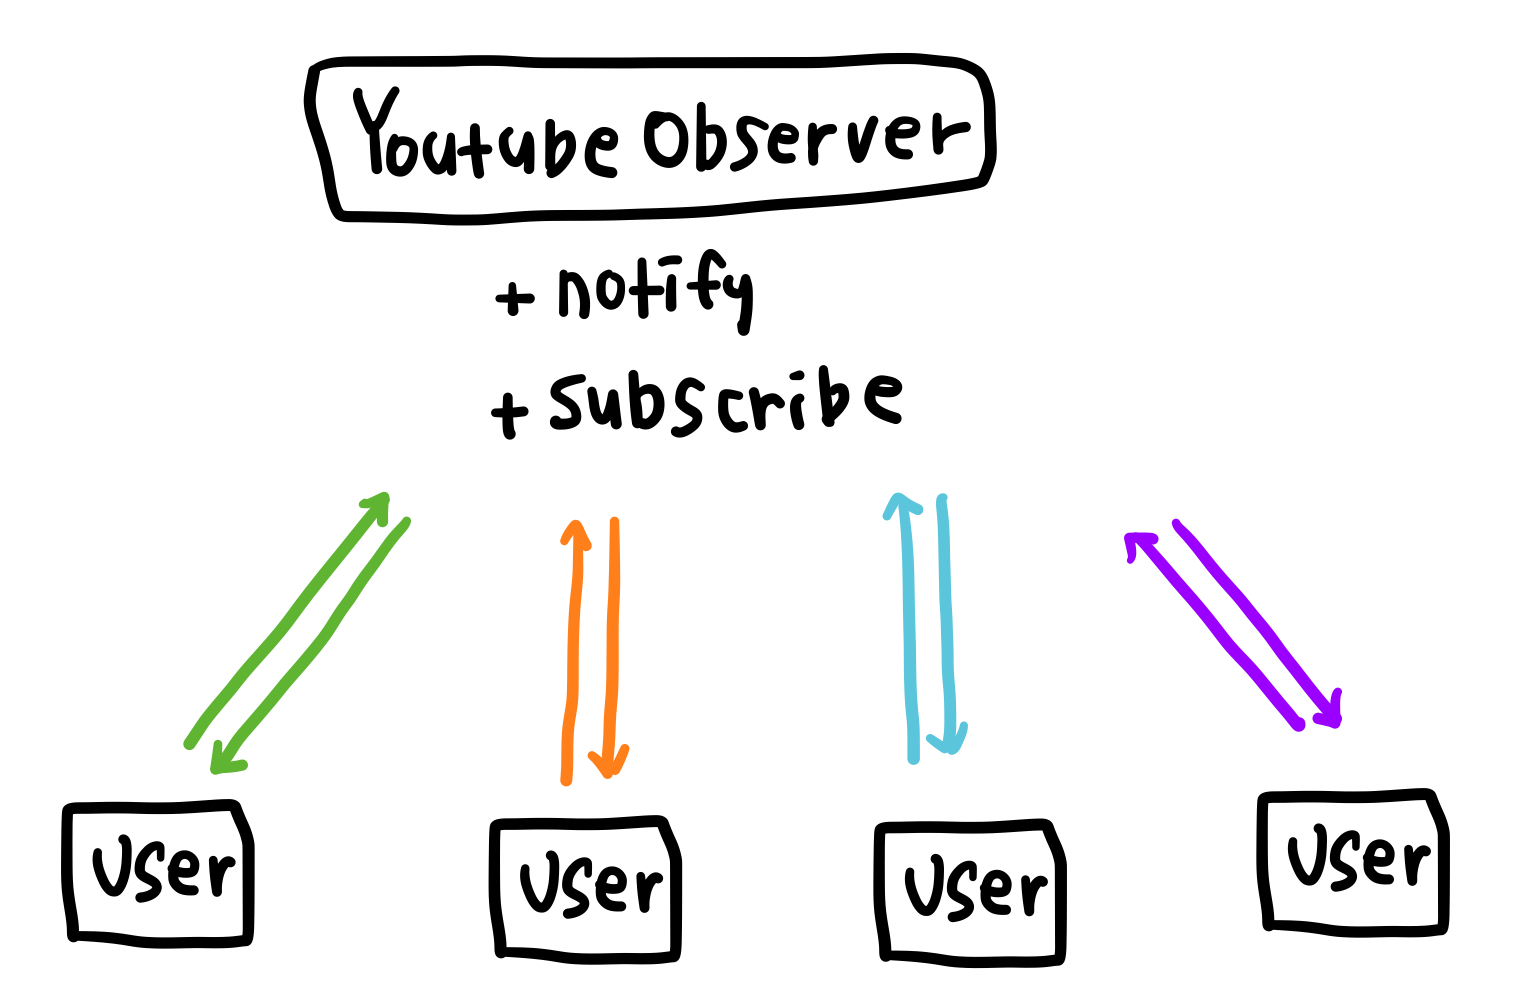 Youtube Observer
+ notify
+ subscribe
User
User
User
User